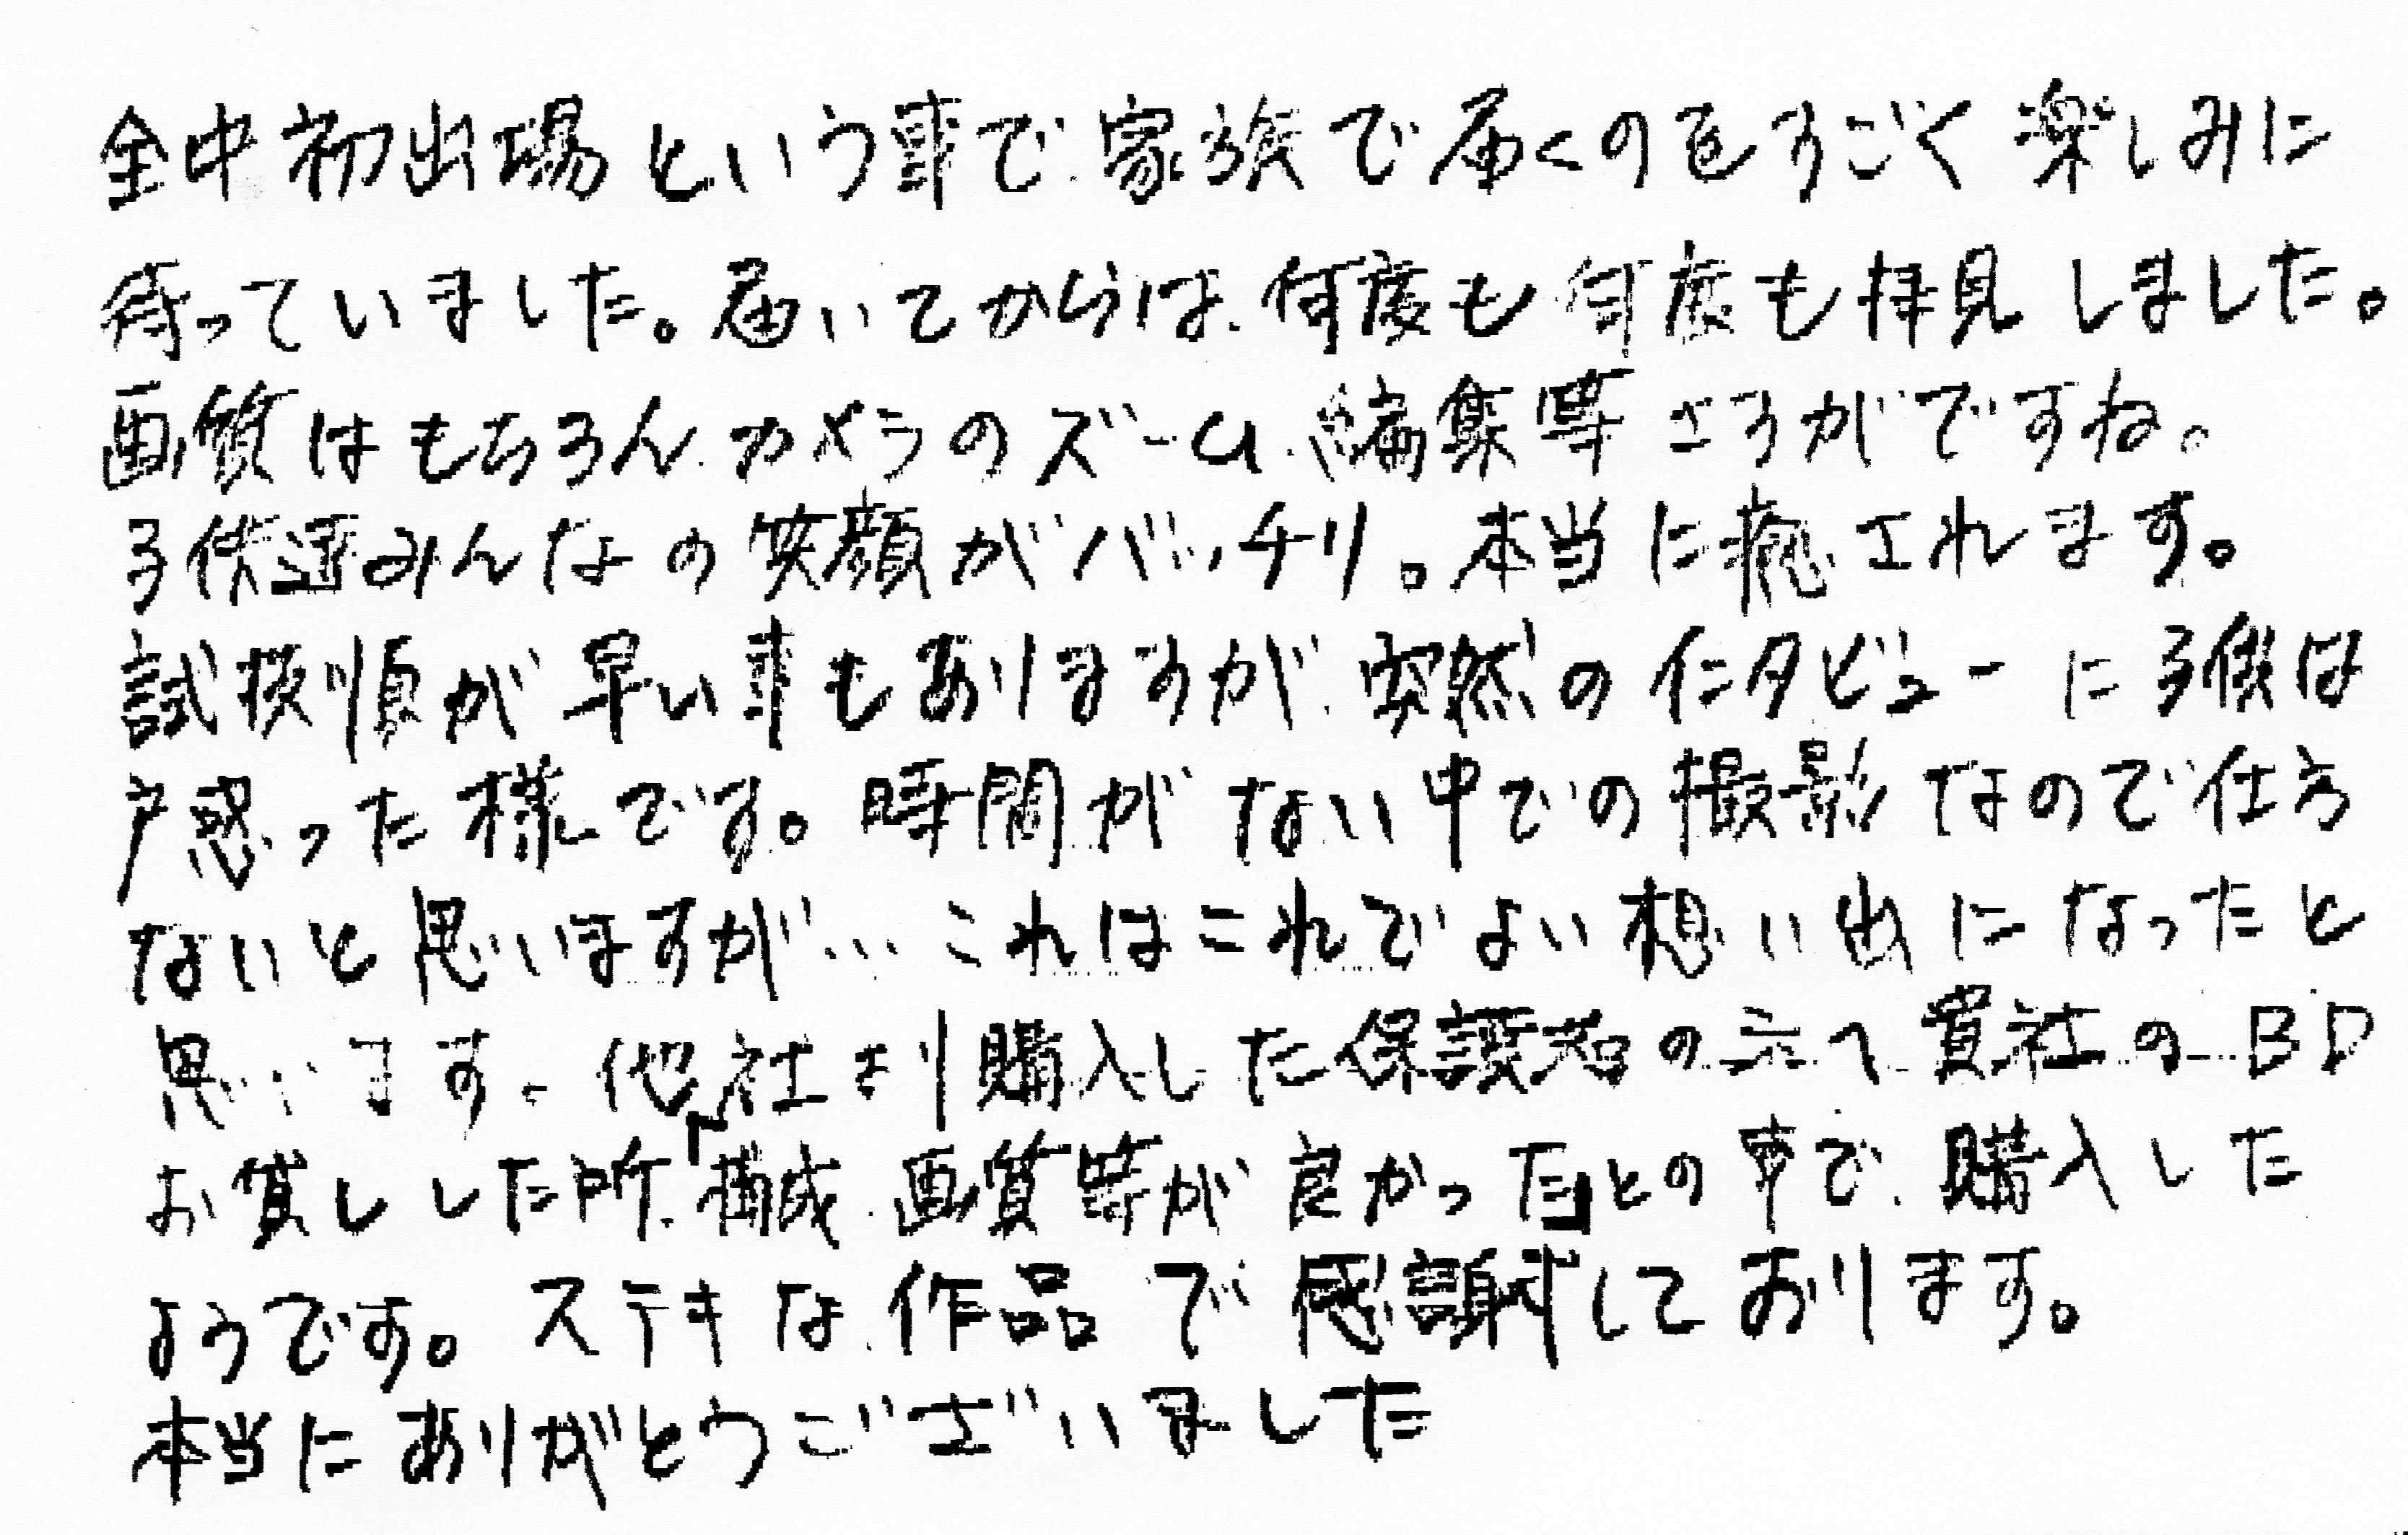 全中初出場という事で、家族で届くのをすごく楽しみに
待っていました。届いてからは、何度も何度も拝見しました。
画質はもちろん、カメラのズーム、編集等さすがですね。
子供達みんなの笑顔がバッチリ。本当に癒されます。
試技順が早い事もありますが、突然のインタビューに子供は
戸惑った様です。時間がない中での撮影なので仕方
ないと思いますが…これはこれでよい想い出になったと
思います。他社より購入した保護者の方へ貴社のBD
お貸しした所、「構成、画質等が良かった」との事で、購入した
ようです。ステキな作品で感謝しております。
本当にありがとうございました